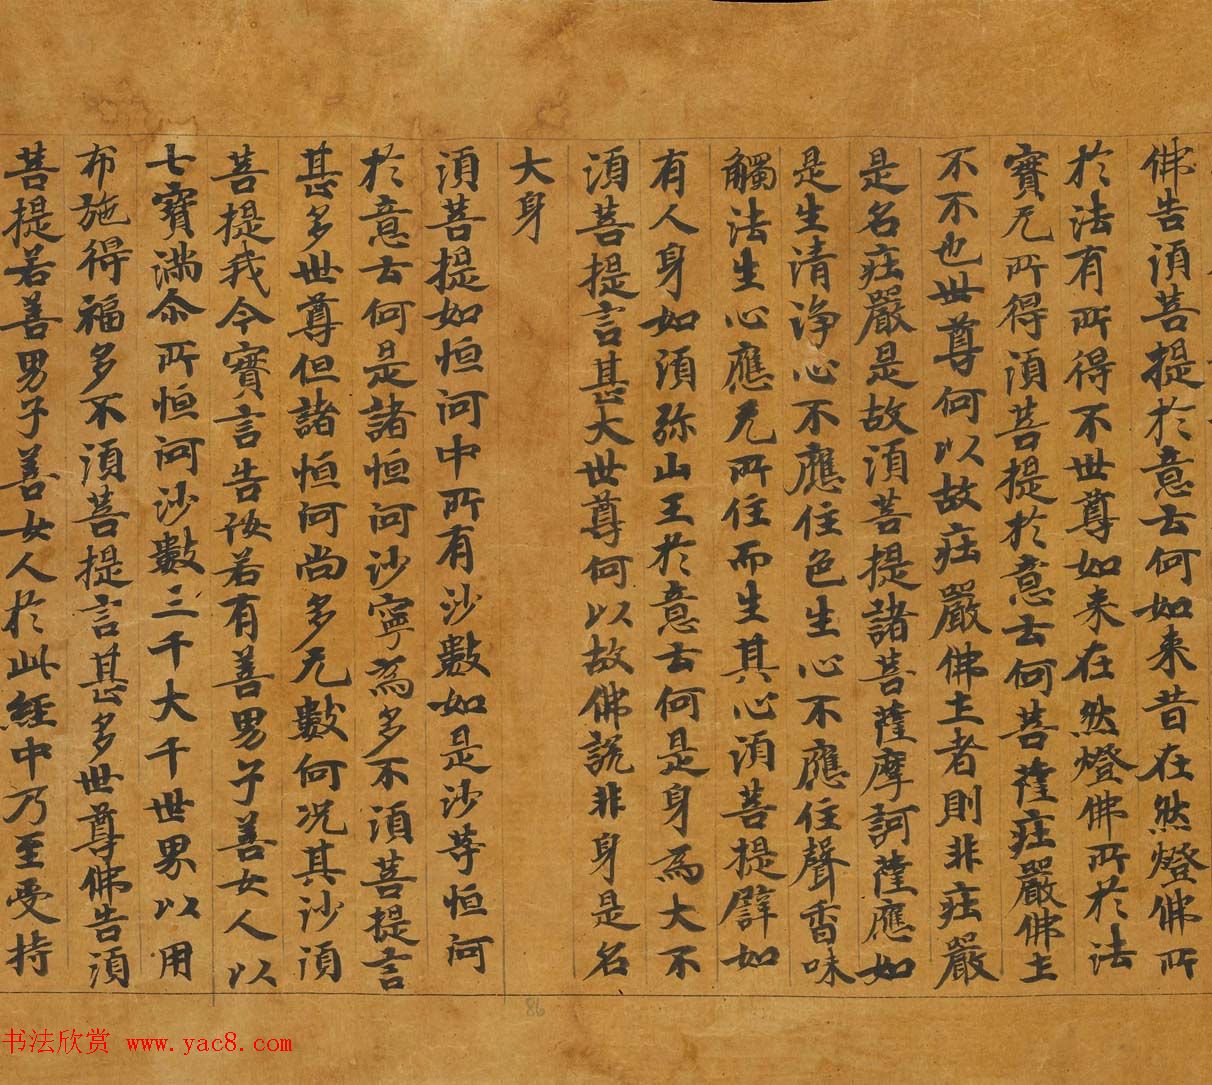 佛告須菩提於意云何如来昔在然燈佛所
於法有所得不世尊如来在然燈佛所於法
實无所得須菩提於意云何菩薩疘嚴佛土
不不也世尊何以故疘嚴佛土者則非疘嚴
是名疘嚴是故須菩提諸菩薩摩訶薩應如
是生清淨心不應住色生心不應住聲香味
觸法生心應无所住而生其心須菩提譬如
有人身如須弥山王於意云何是身為大不
須菩提言甚大世尊何以故佛説非身是名
大身
須菩提如恒河中所有沙數如是沙等恒河
於意云何是諸恒河沙寧為多不須菩提言
甚多世尊但諸恒河尚多无數何况其沙須
菩提我今實言告汝若有善男子善女人以
七寶滿尒所恒河沙數三千大千世界以用
布施得福多不須菩提言甚多世尊佛告須
菩提若善男子善女人於此經中乃至受持
86
书法欣赏 www.yac8.com